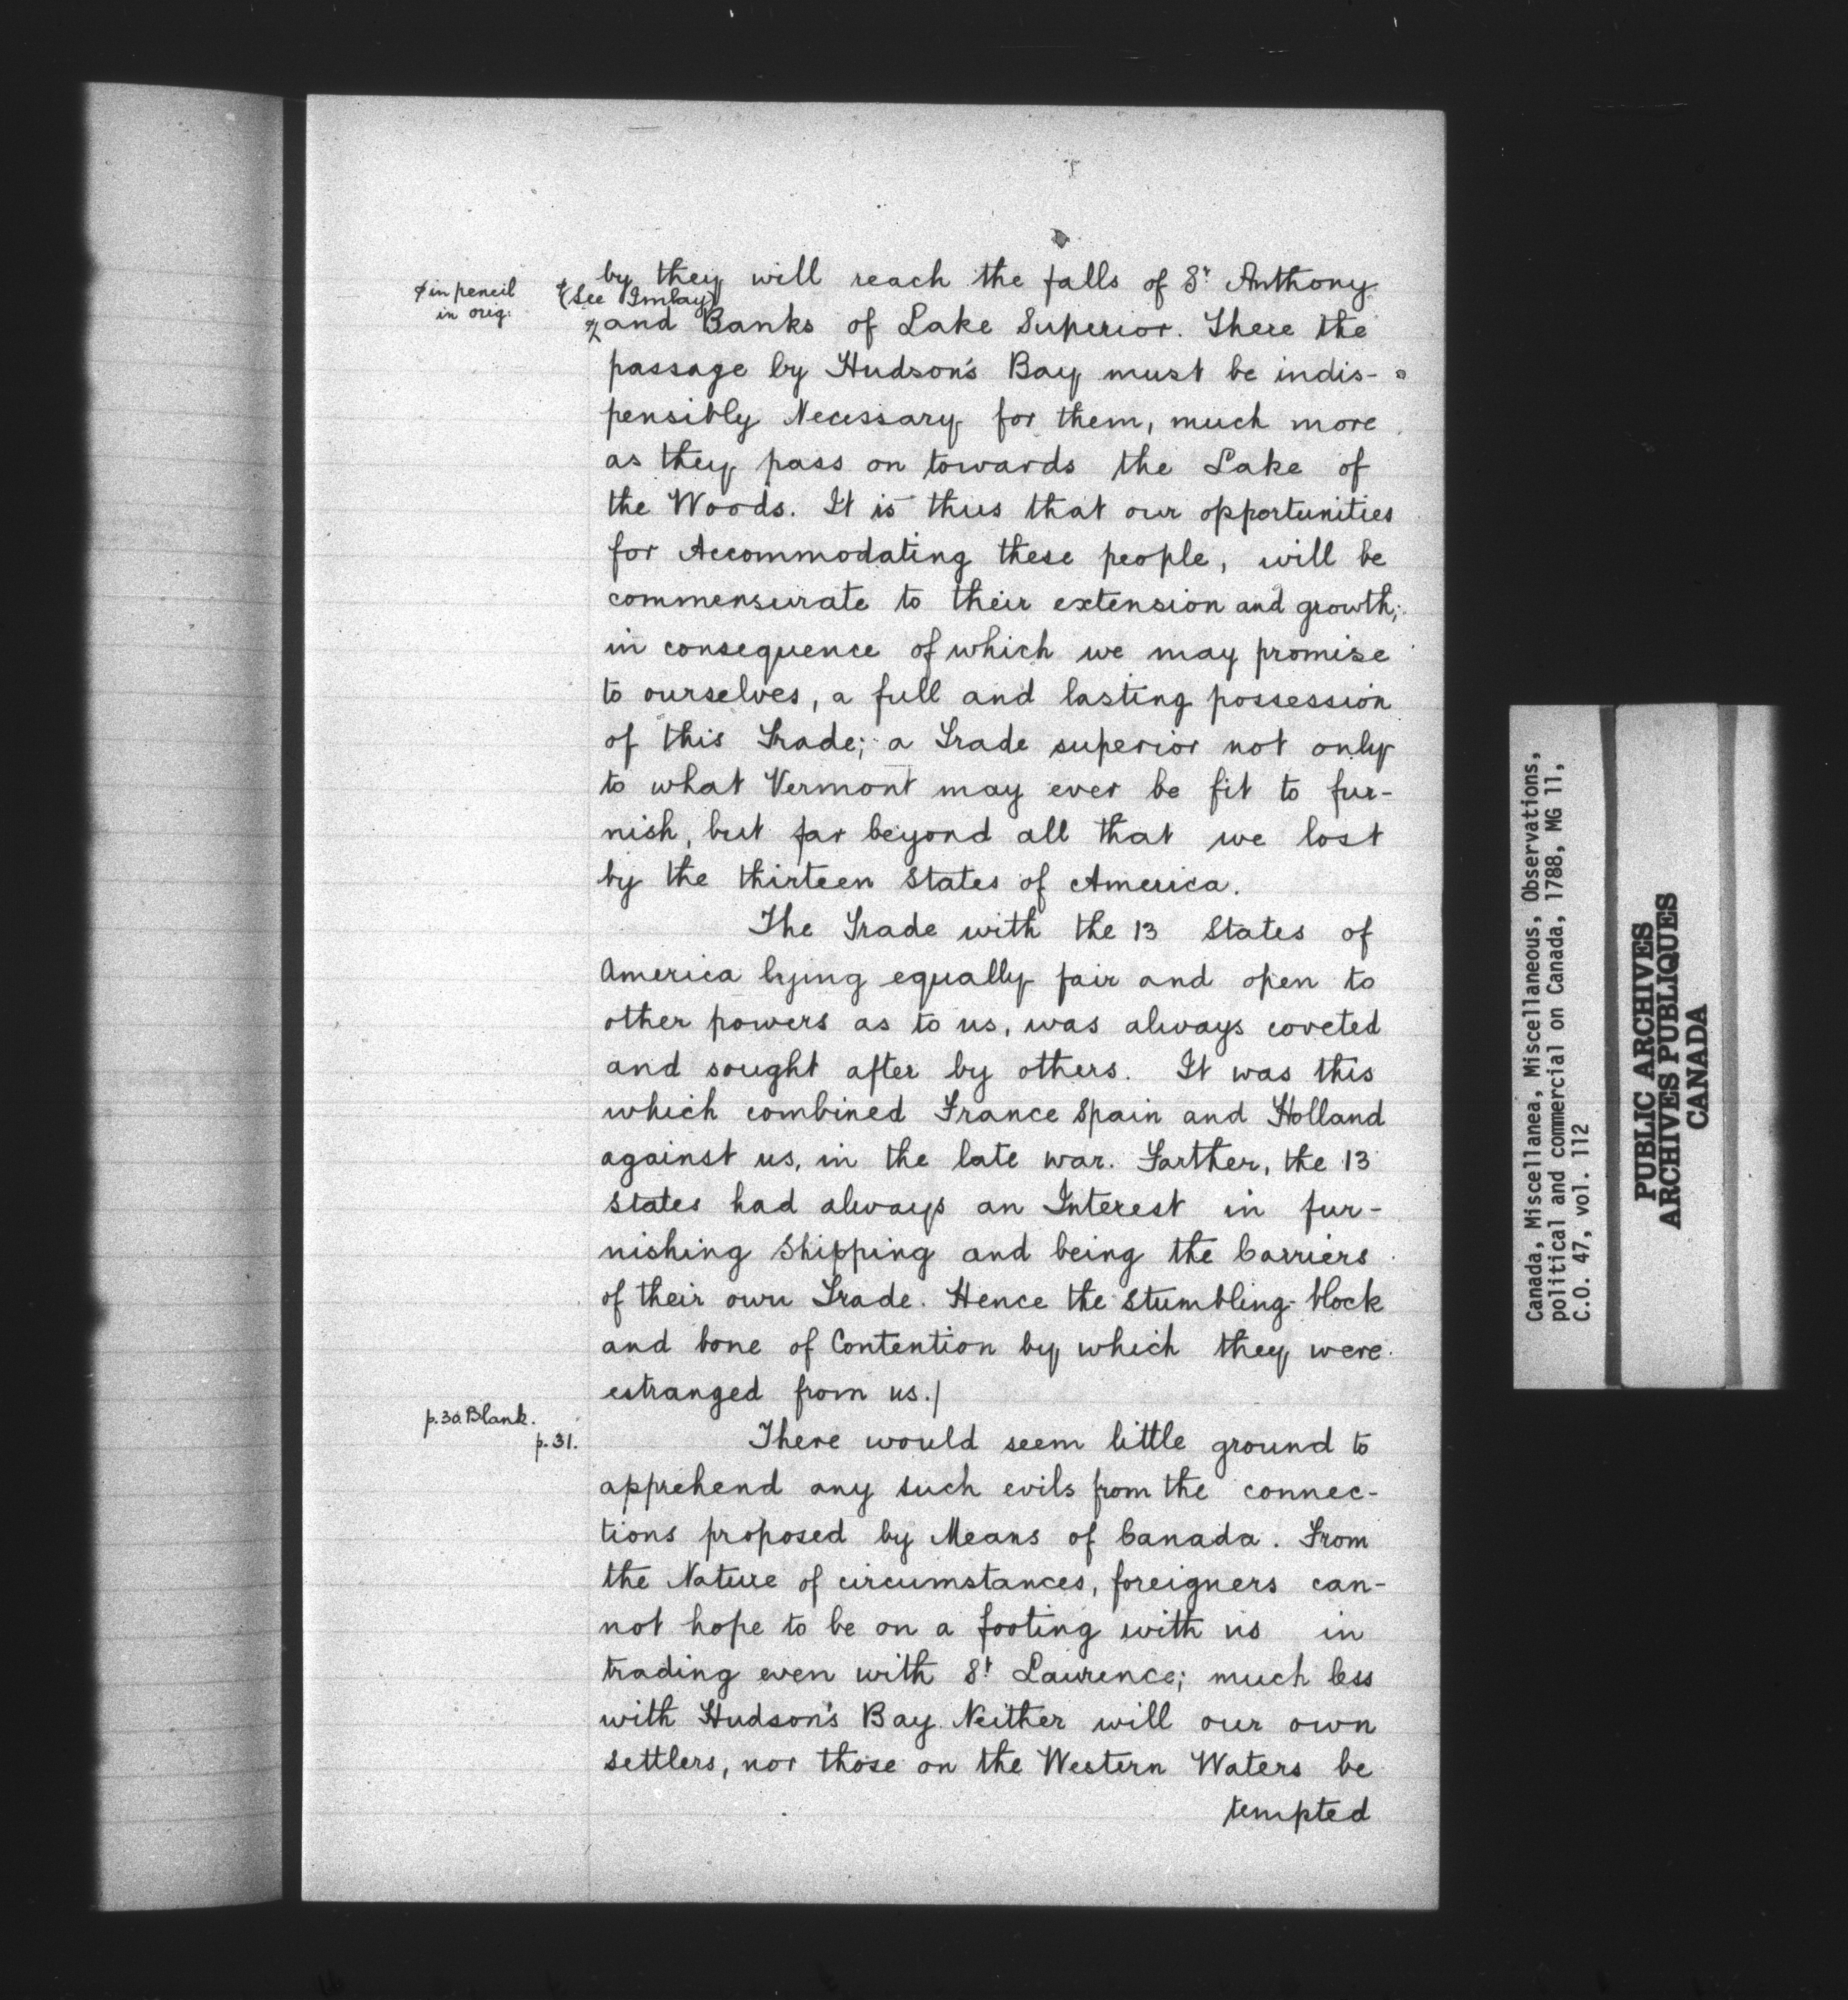 by they will reach the falls of St Anthony
ϕ in pencil
in orig:
ϕ(See Imlay)
and Banks of Lake Superior. There the
passage by Hudson's Bay must be indis-
pensibly Necessary for them, much more
as they pass on towards the Lake of
the Woods. It is thus that our opportunities
for Accommodating these people, will be
commensurate to their extension and growth;
in consequence of which we may promise
to ourselves, a full and lasting possession
of this Trade; a Trade superior not only
to what Vermont may ever be fit to fur-
nish, but far beyond all that we lost
by the thirteen States of America.
The Trade with the 13 States of
America lying equally fair and open to
other powers as to us, was always coveted
and sought after by others. It was this
which combined France Spain and Holland
against us, in the late war. Farther, the 13
States had always an Interest in fur-
nishing Shipping and being the Carriers
of their own Trade. Hence the stumbling-block
and bone of Contention by which they were
estranged from us./
p.30 Blank.
p.31.
There would seem little ground to
apprehend any such evils from the connec-
tions proposed by Means of Canada. From
the Nature of circumstances, foreigners can-
not hope to be on a footing with us in
trading even with St Laurence; much less
with Hudson's Bay. Neither will our own
settlers, nor those on the Western Waters be
tempted
Canada, Miscellanea, Miscellaneous, Observations,
political and commercial on Canada, 1788, MG 11,
C.O. 47, vol. 112
PUBLIC ARCHIVES
ARCHIVES PUBLIQUES
CANADA